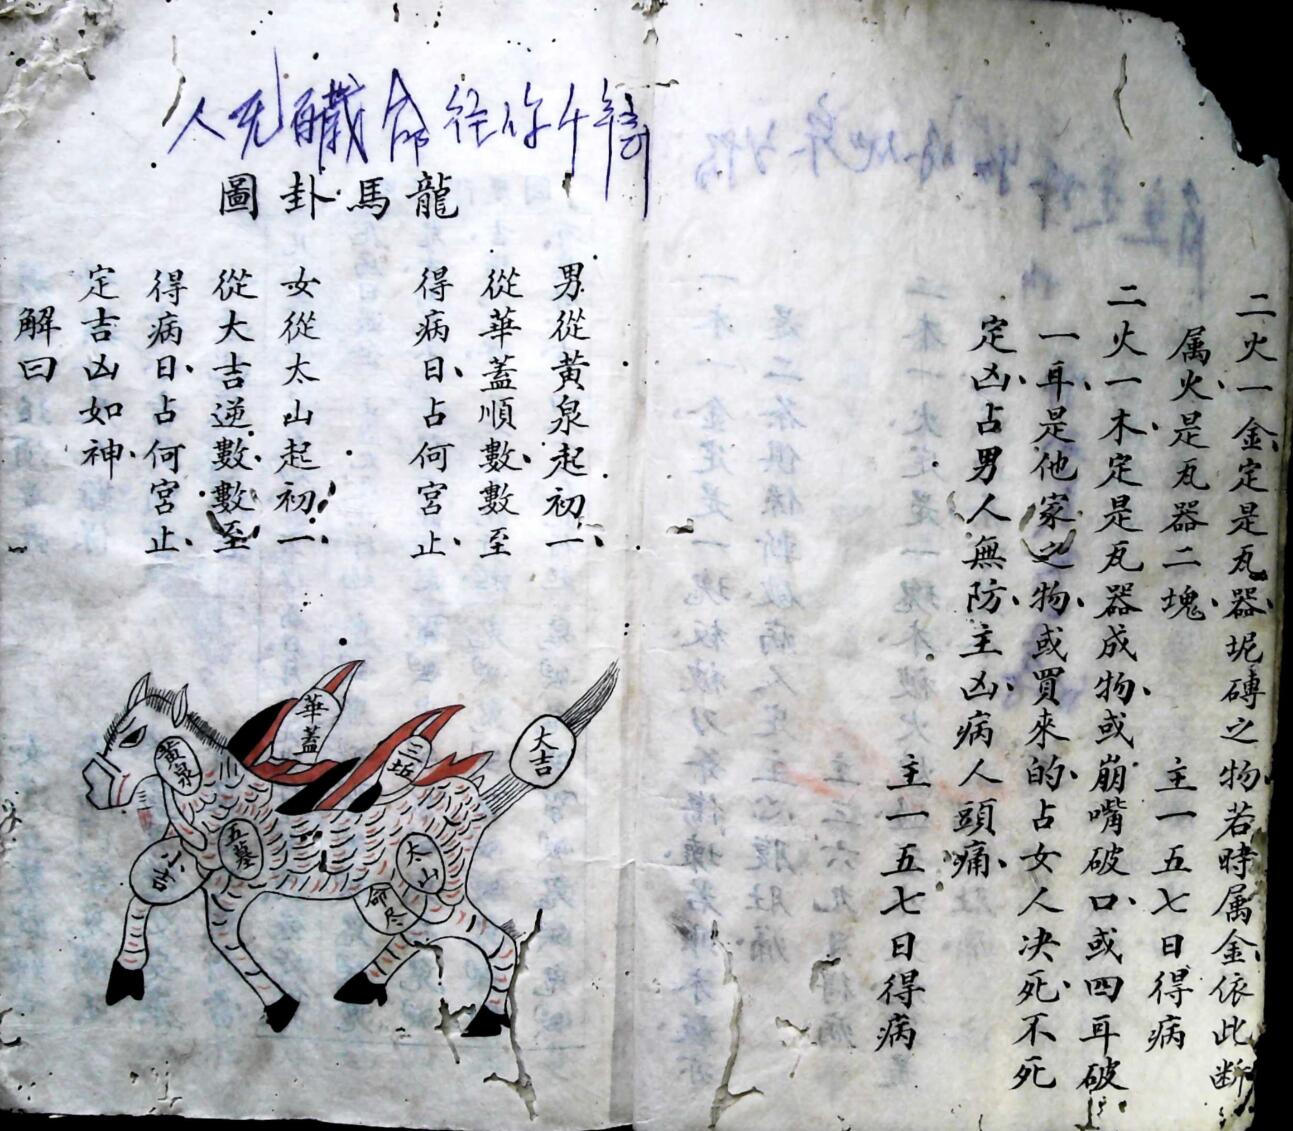 二火一金定是瓦器坭磚之物若時属金依此断
属火是瓦器二塊　主一五七日得病
二火一木定是瓦器成物或崩嘴破口或四耳破
一耳是他家之物或買來的占女人决死不死
定凶占男人無防主凶病人頭痛
主一五七日得病
龍馬卦圖
男從黃泉起初一
從華蓋順數數至
得病日占何宮止
女從太山起初一
從大吉逆數數至
得病日占何宮止
定吉凶如神
解曰
大吉
華蓋
三坵
黃泉
五墓
太山
小吉
命尽